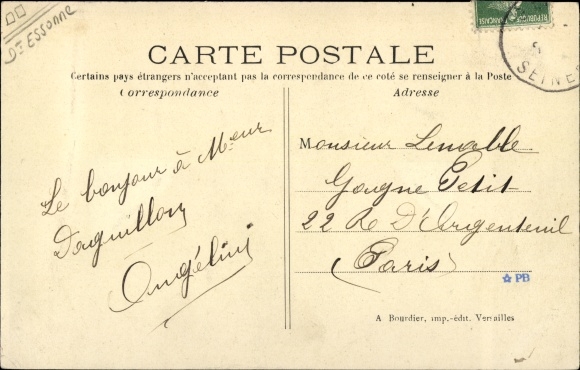 Dt Essonne
RÉPUBLIQUE FRANÇAISE
SEINE
CARTE POSTALE
Certains pays étrangers n'acceptant pas la correspondance de ce coté se renseigner à la Poste
Correspondance
Adresse
Le bonjour à Meur
Daguillon
Angélini
Monsieur Lemalle
Gagne Petit
22 R D'Argenteuil
Paris
PB
A Bourdier, imp.-édit. Versailles